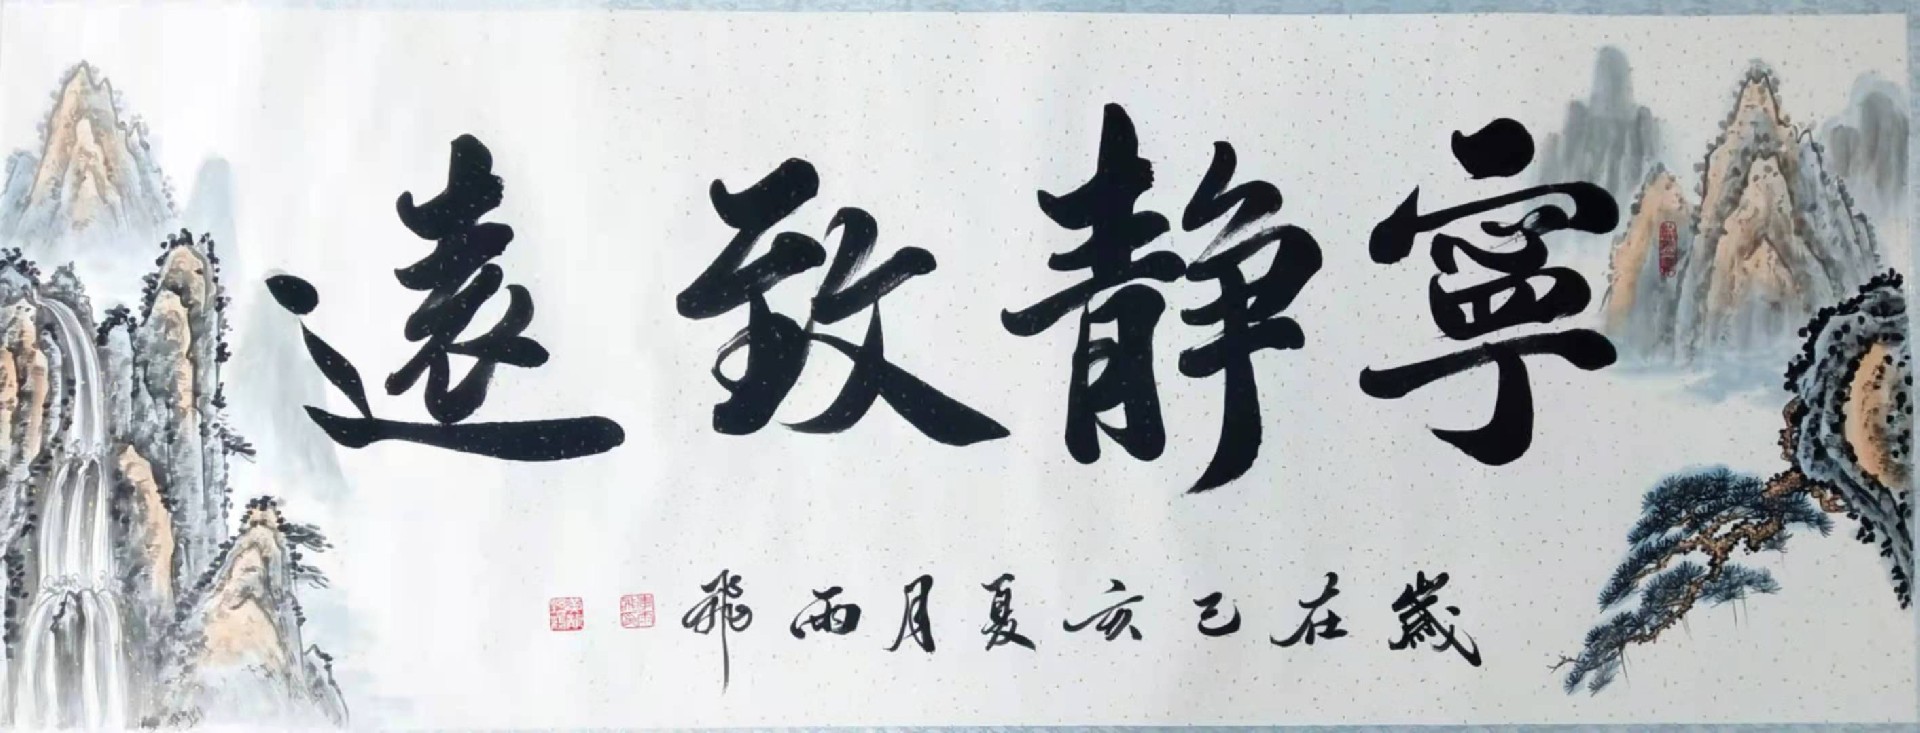 寧靜致遠
歲在己亥夏月雨飛